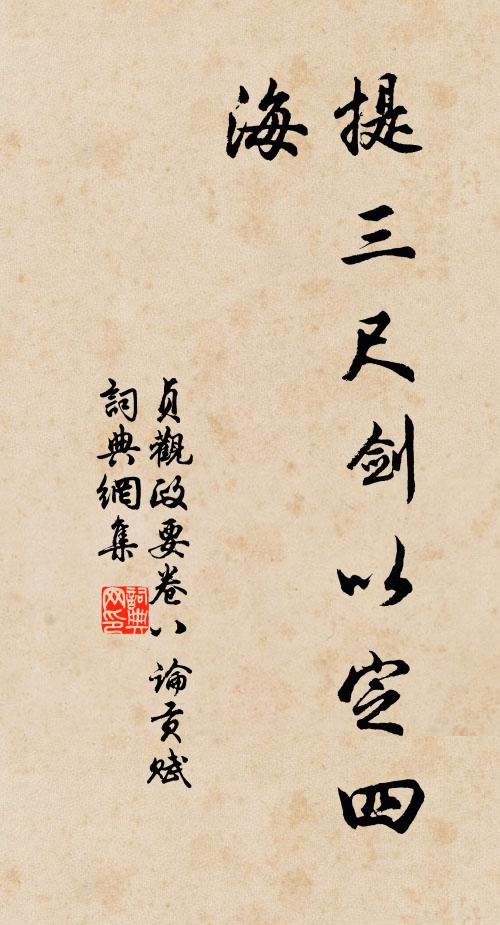 提三尺劍以定四
海
貞觀政要卷八 論貢賦
詞典網集
詞典网印